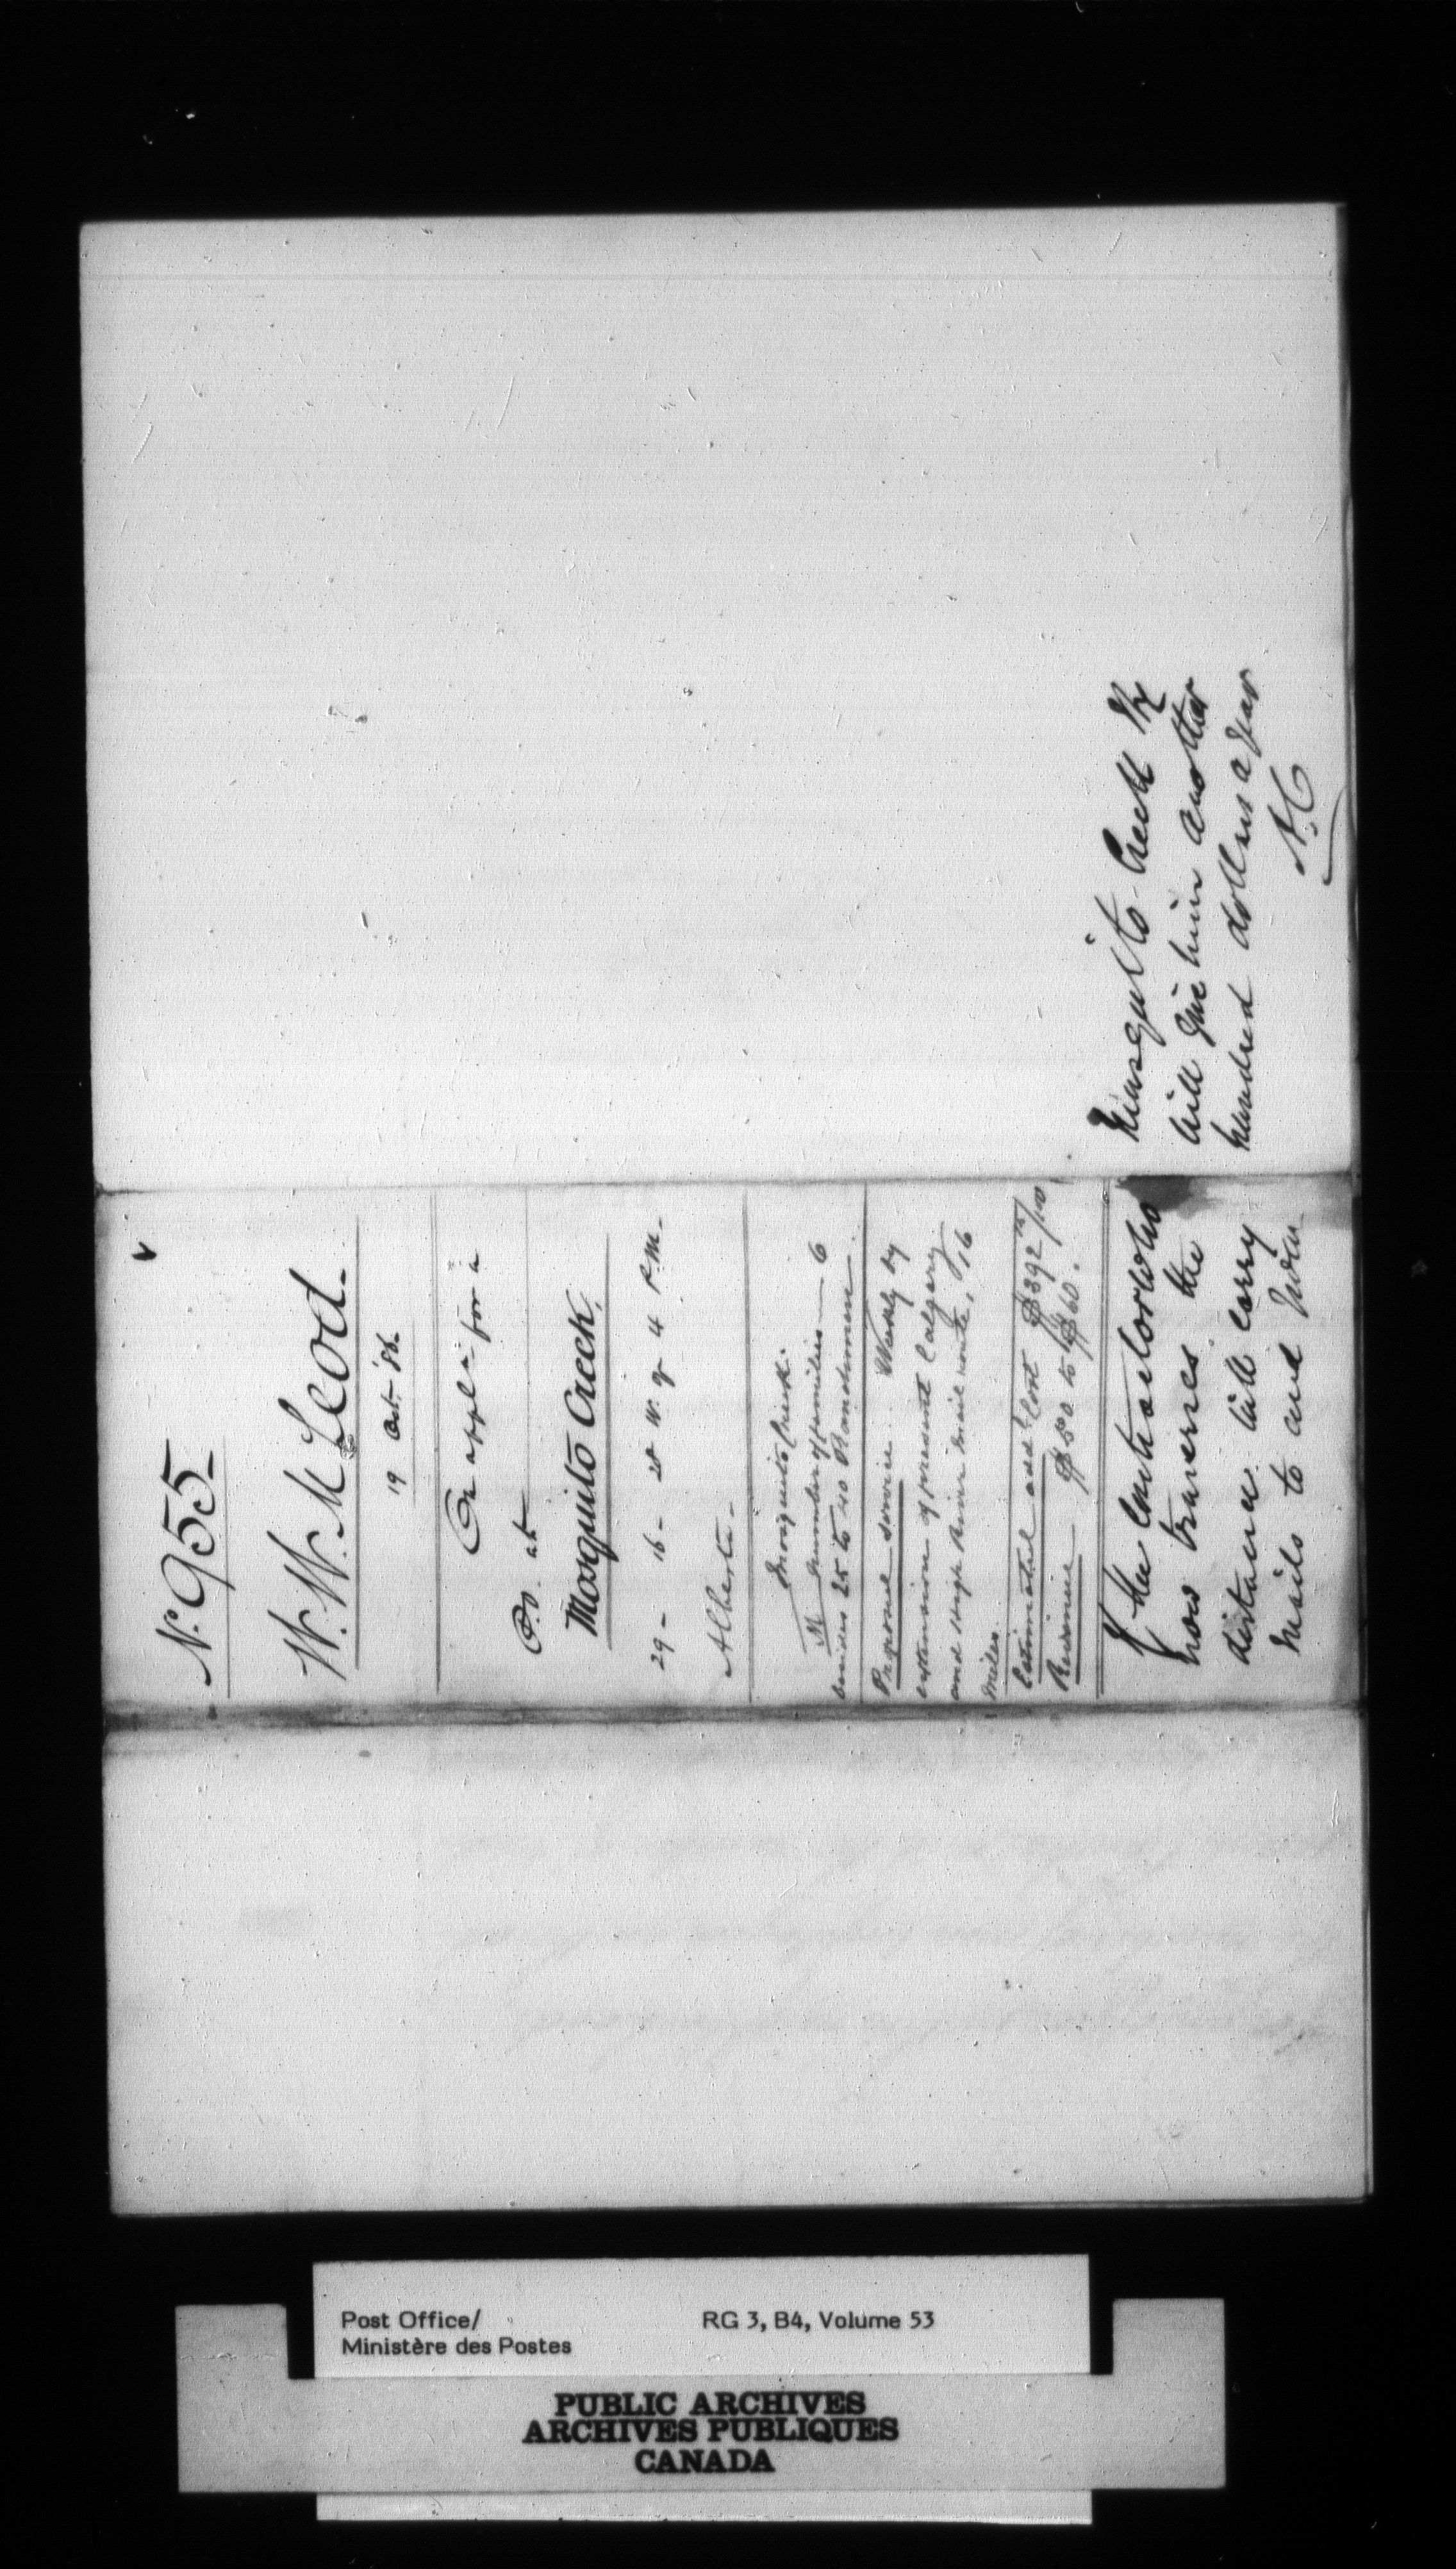 No. 955
W. W. McLeod.
19 Oct. '86.
On appln for a
P.O. at
Mosquito Creek,
29 - 16 - 28 W. of 4 P.M.
Alberta -
Mosquito Creek.
Number of families — 6
besides 25 to 40 Ranchmen.
Proposed service. Weekly by
extension of present Calgary
and High River mail route, 16
miles.
Estimated addl Cost $392 /100
Revenue $50 to $60.
If the Contractor who
now traverses the
distance will carry
mails to and from
Mosquito Creek
will give him another
hundred dollars a year
Post Office/
Ministère des Postes
RG 3, B4, Volume 53
PUBLIC ARCHIVES
ARCHIVES PUBLIQUES
CANADA